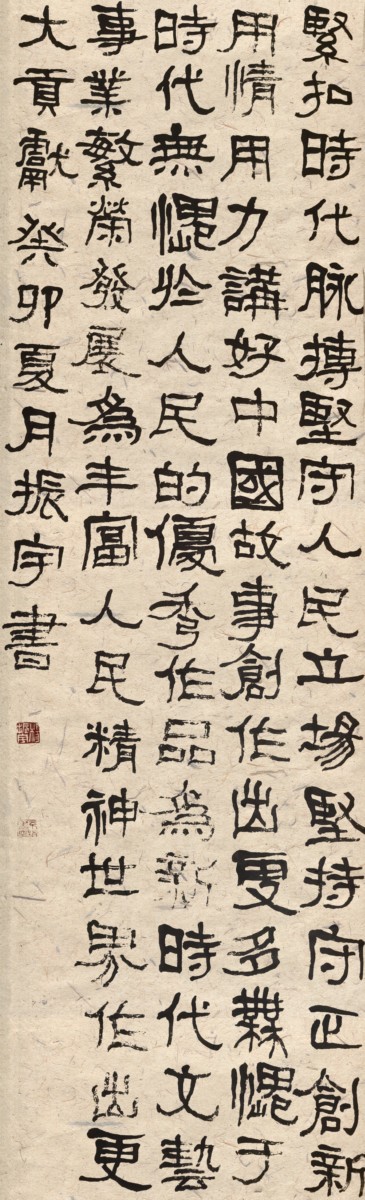 緊扣時代脉搏堅守人民立場堅持守正創新
用情用力講好中國故事創作出更多無愧于
時代無愧於人民的優秀作品為新時代文藝
事業繁榮發展為丰富人民精神世界作出更
大貢獻癸卯夏月振宇書